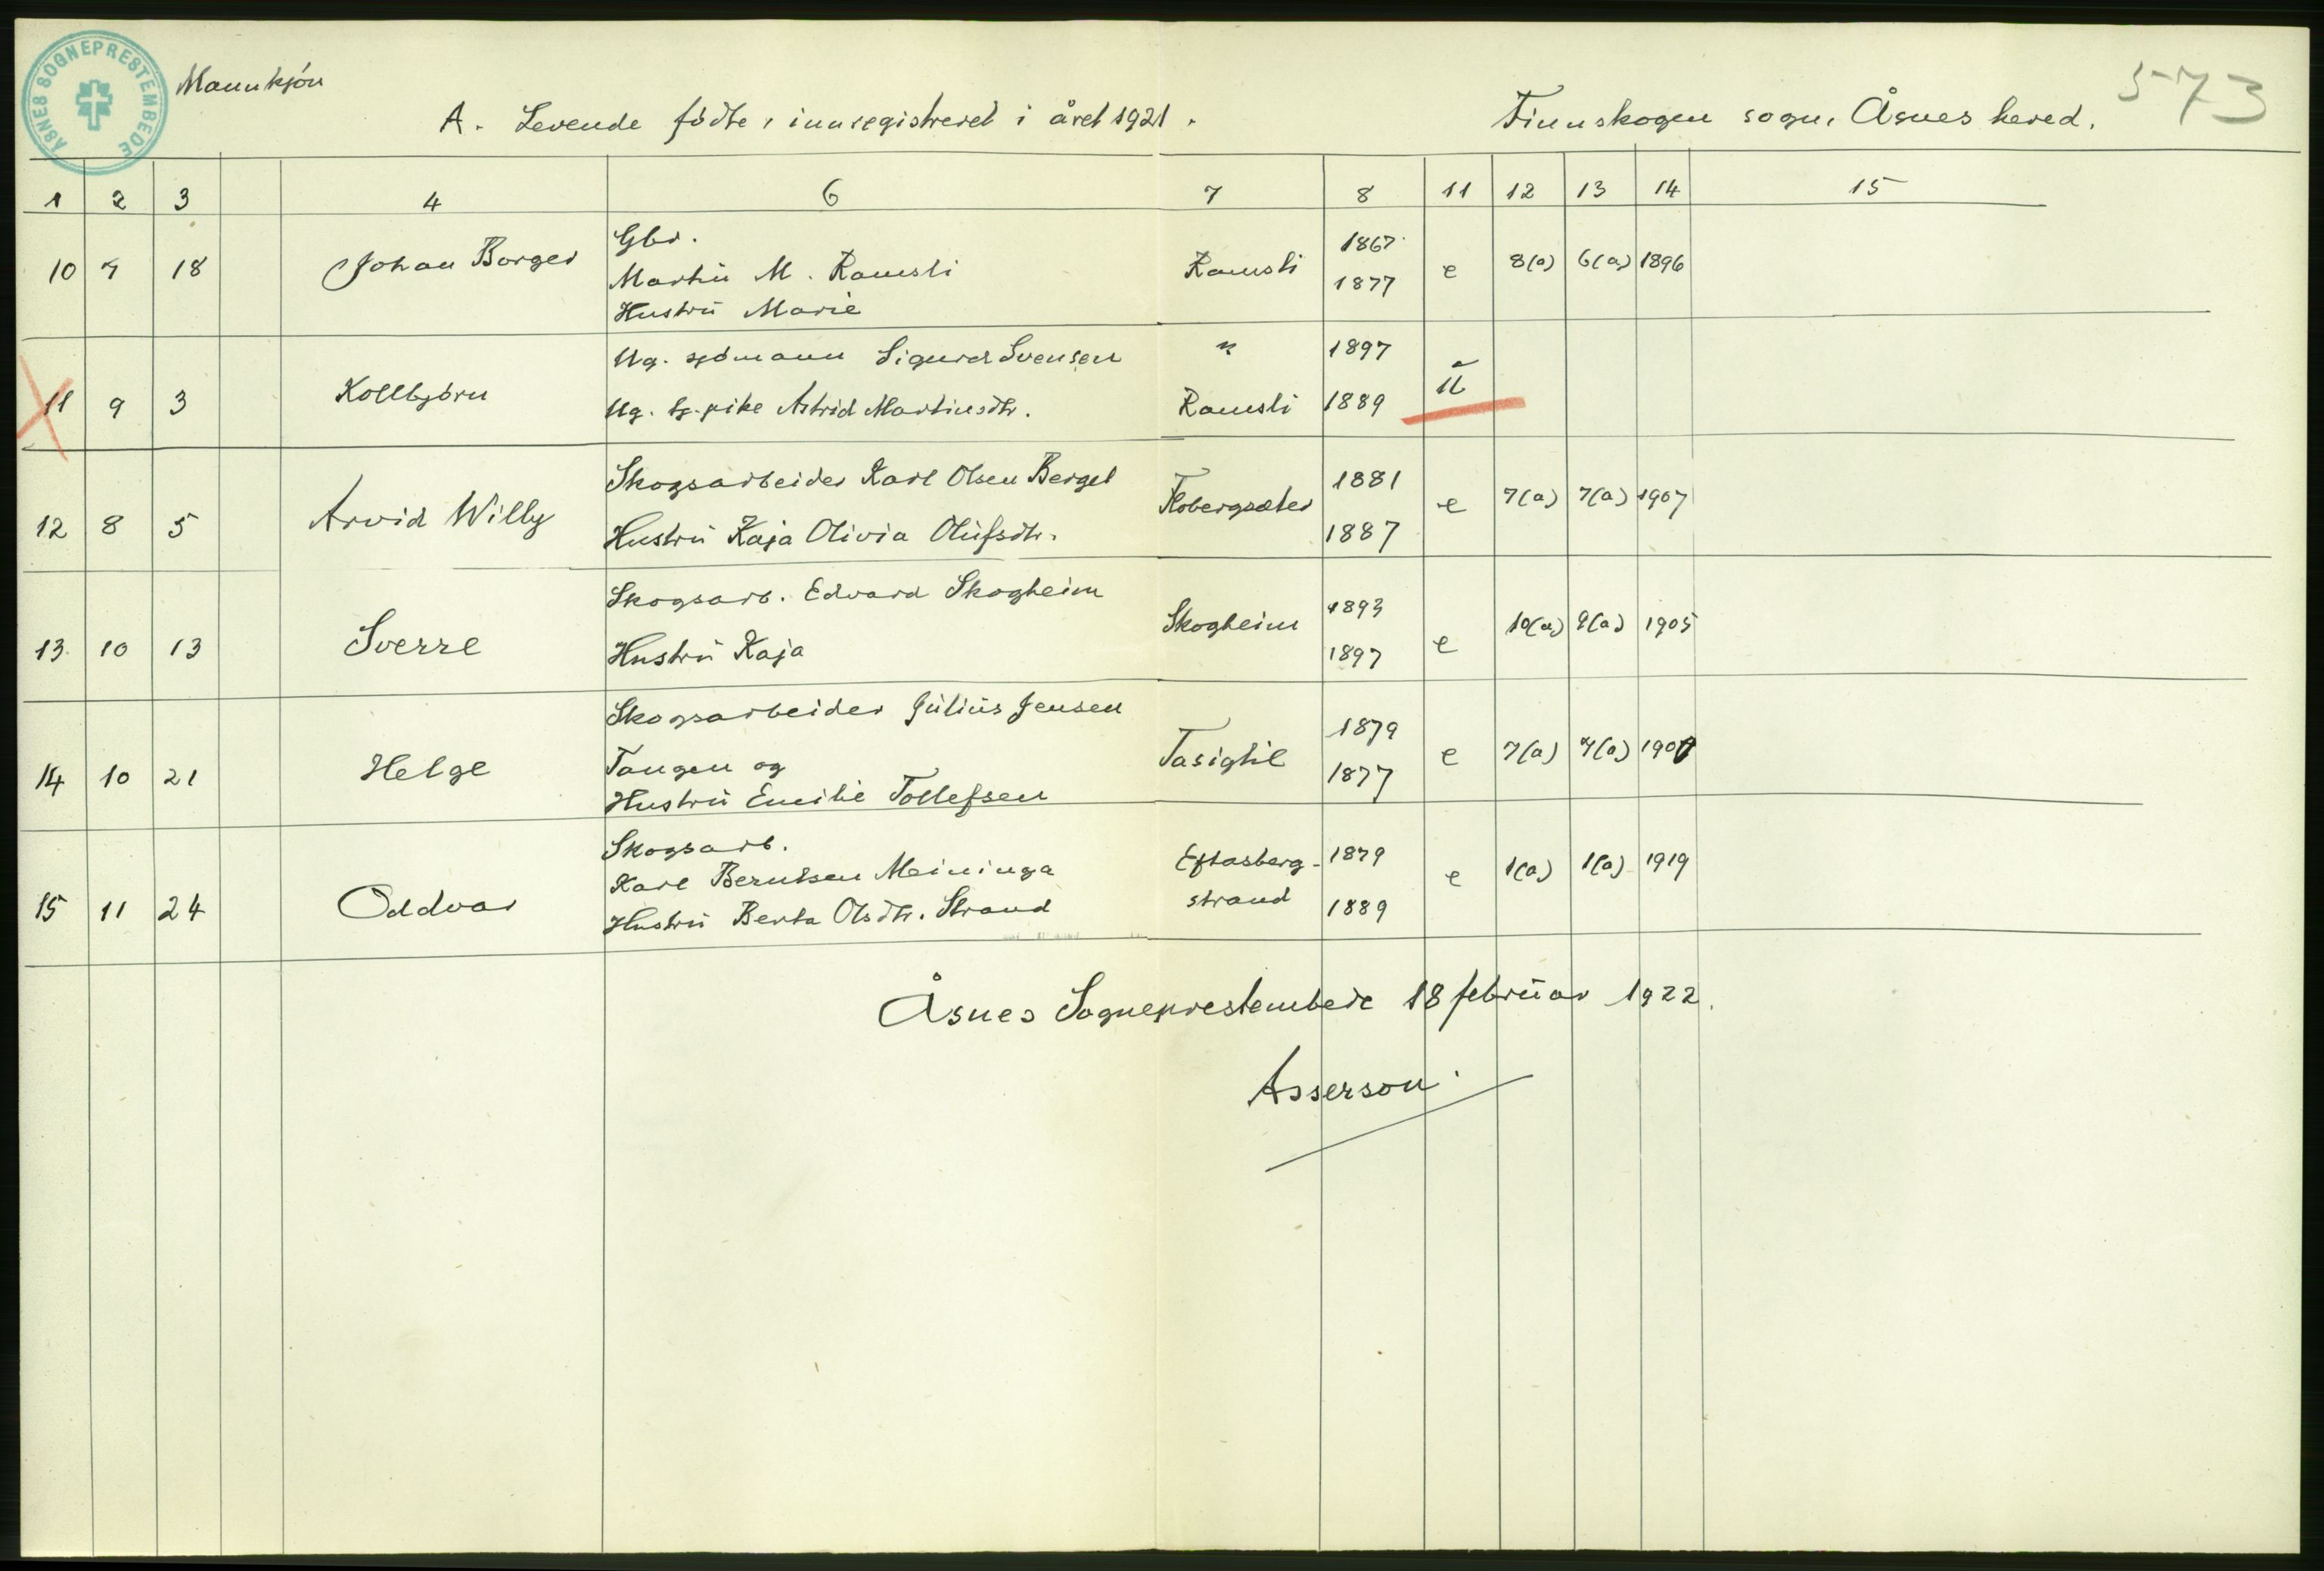 ÅSNES SOGNEPRESTEMBEDE
Mannkjön
573
A. Levende födte, innregistreret i året 1921. Finnskogen sogn, Åsnes hered.
1 2 3 4 6 7 8 11 12 13 14 15
Gbr.
10 7 18 Johan Borger Martin M. Ramsli Ramsli 1867 1877 e 8(a) 6(a) 1896
Hustru Marie
Ug. sjömann Sigurd Svensen " 1897
11 9 3 Kollbjörn u
Ug. tj.pike Astrid Martinsdtr. Ramsli 1889
Skogsarbeider Karl Olsen Berget 1881
12 8 5 Arvid Willy Flobergsæter e 7(a) 7(a) 1907
Hustru Kaja Olivia Olufsdtr. 1887
Skogsarb. Edvard Skogheim 1893
13 10 13 Sverre Skogheim e 10(a) 9(a) 1905
Hustru Kaja 1897
Skogsarbeider Julius Jensen 1879
14 10 21 Helge Tangen og e 7(a) 7(a)
Hustru Emilie Tollefsen 1877
Skogsarb.
Karl Berntsen Meininga Eftasberg- 1879
15 11 24 Oddvar e 1(a) 1(a) 1919
Hustru Berta Olsdtr. Strand strand 1889
Åsnes Sogneprestembede 18 februar 1922.
Asserson.